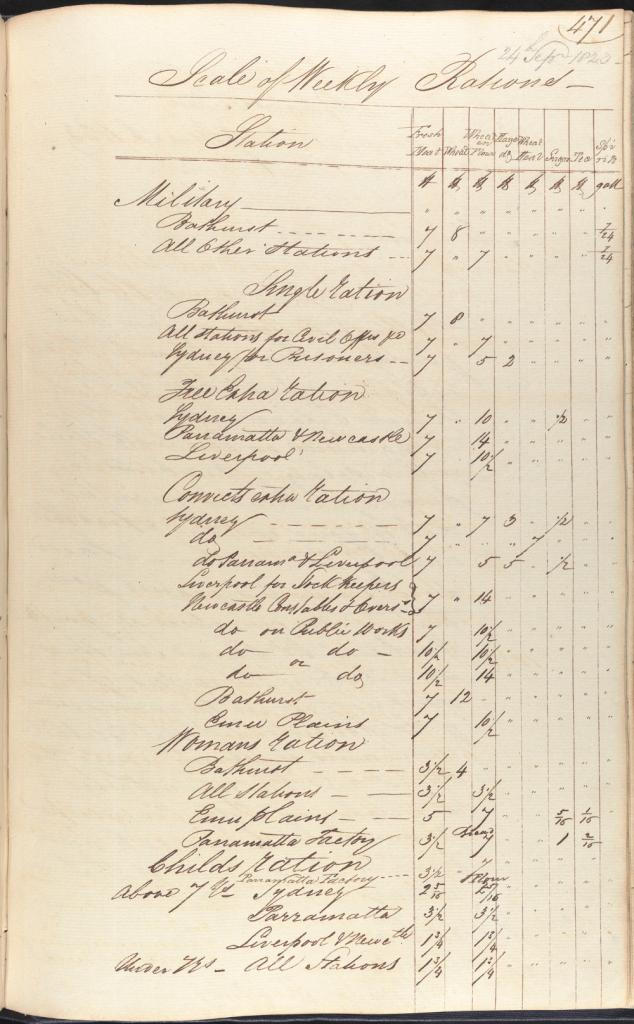 471
24 Sepr 1823
Scale of Weekly Rations
Station Fresh Meat Wheat Wheaten Flour Maize do Wheat Meal Sugar Tea Spirits
lb lb lb lb lb lb lb gall
Military
Bathurst 7 8 " " " " " 7/24
All Other Stations 7 " 7 " " " " 7/24
Single ration
Bathurst 7 8 " " " " " "
All stations for Civil Offrs &c 7 " 7 " " " " "
Sydney for Prisoners 7 5 2 " " " "
Free Extra ration
Sydney 7 " 10 " " 1/2 " "
Parramatta & Newcastle 7 " 14 " " " " "
Liverpool 7 10 1/2 " " " " "
Convicts extra ration
Sydney 7 " 7 3 " 1/2 " "
do 7 " " " 7 " " "
do Parrama & Liverpool 7 5 5 " 1/2 " "
Liverpool for Stock Keepers
Newcastle Constables & Overs 7 " 14 " " " " "
do on Public Works 7 10 1/2 " " " " "
do do 10 1/2 10 1/2 " " " " "
do or do 10 1/2 14 " " " " "
Bathurst 7 12 " " " " " "
Emu Plains 7 10 1/2 " " " " "
Womans ration
Bathurst 3 1/2 4 " " " " " "
All Stations 3 1/2 3 1/2 " " " " "
Emu plains 5 7 " " 5/16 1/16 "
Parramatta Factory 3 1/2 7 " " 1 2/16 "
Childs ration
Parramatta Factory 3 1/2
Above 7 Ys Sydney 2 5/16
Parramatta 3 1/2 3 1/2 " " " " "
Liverpool & Newctle 1 3/4 1 3/4 " " " " "
Under 7 Ys All Stations 1 3/4 1 3/4 " " " " "